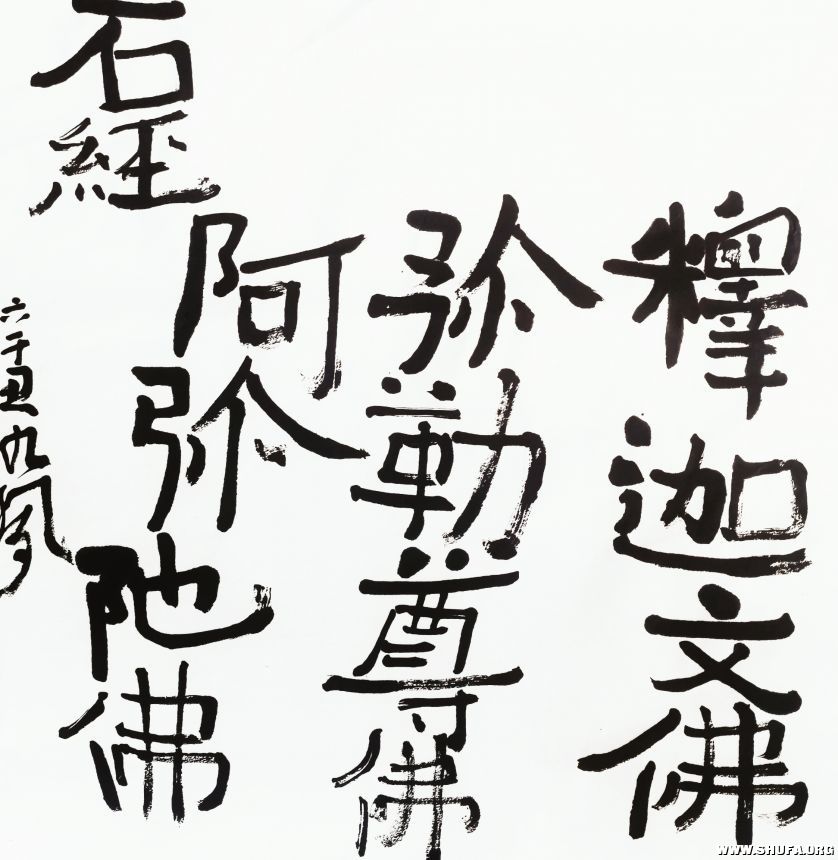 釋迦文佛
弥勒尊佛
阿弥阤佛
石經
丑九
WWW.SHUFA.ORG